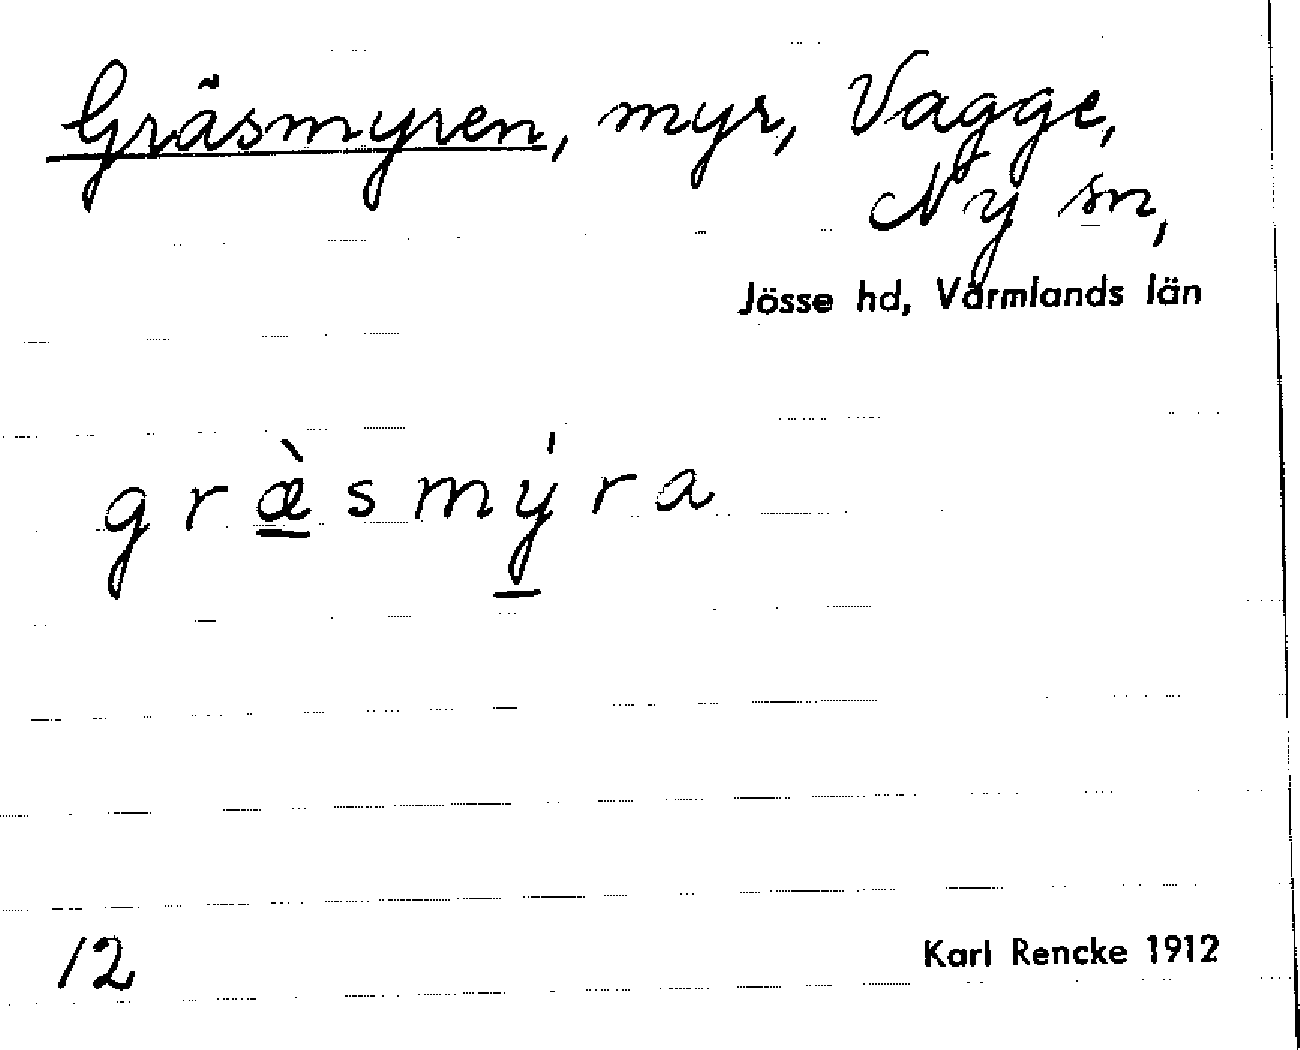 Gräsmyren, myr, Vagge,
Ny sn,
Jösse hd, Värmlands län
græ̀smýra
12
Karl Rencke 1912